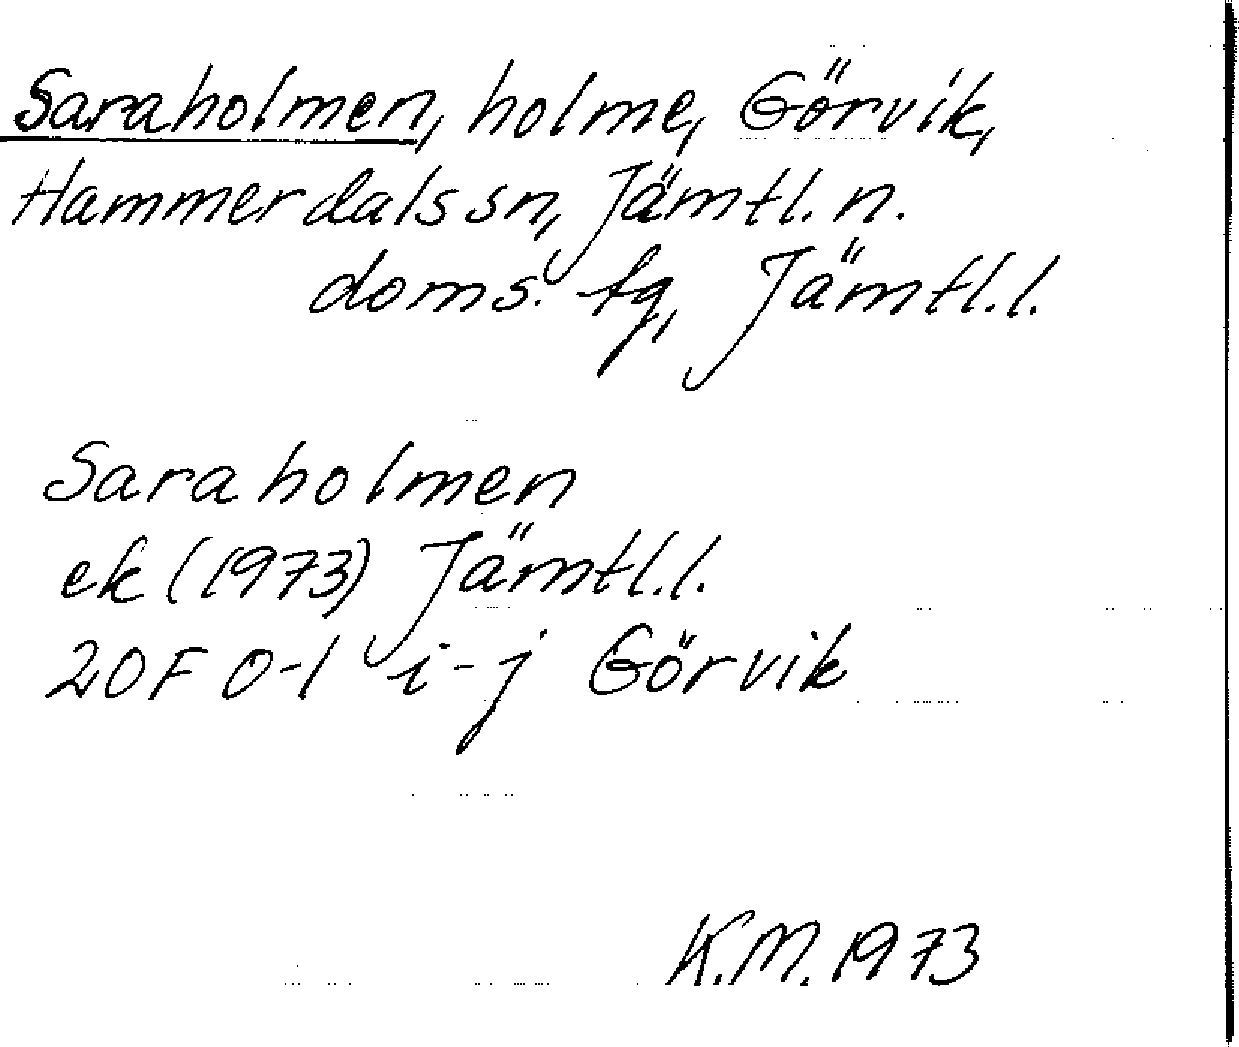 Saraholmen, holme, Görvik,
Hammerdals sn, Jämtl. n.
doms. tg, Jämtl. l.
Saraholmen
ek (1973) Jämtl. l.
20F 0-1 i-j Görvik
K.M. 1973